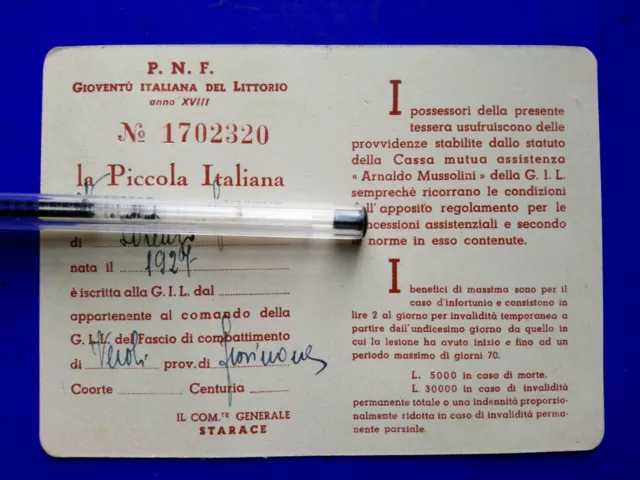 P. N. F.
GIOVENTÙ ITALIANA DEL LITTORIO
anno XVIII
№ 1702320
la Piccola Italiana
di Lorenzo
nata il 1927
è iscritta alla G.I.L. dal
appartenente al comando della
G.I.L. del Fascio di combattimento
di Veroli prov. di Frosinone
Coorte Centuria
IL COM.TE GENERALE
STARACE
I possessori della presente
tessera usufruiscono delle
provvidenze stabilite dallo statuto
della Cassa mutua assistenza
« Arnaldo Mussolini » della G. I. L.
sempreché ricorrano le condizioni
dell'apposito regolamento per le
concessioni assistenziali e secondo
le norme in esso contenute.
I benefici di massima sono per il
caso d'infortunio e consistono in
lire 2 al giorno per invalidità temporanea a
partire dall'undicesimo giorno da quello in
cui la lesione ha avuto inizio e fino ad un
periodo massimo di giorni 70.
L. 5000 in caso di morte.
L. 30000 in caso di invalidità
permanente totale o una indennità proporzio-
nalmente ridotta in caso di invalidità perma-
nente parziale.